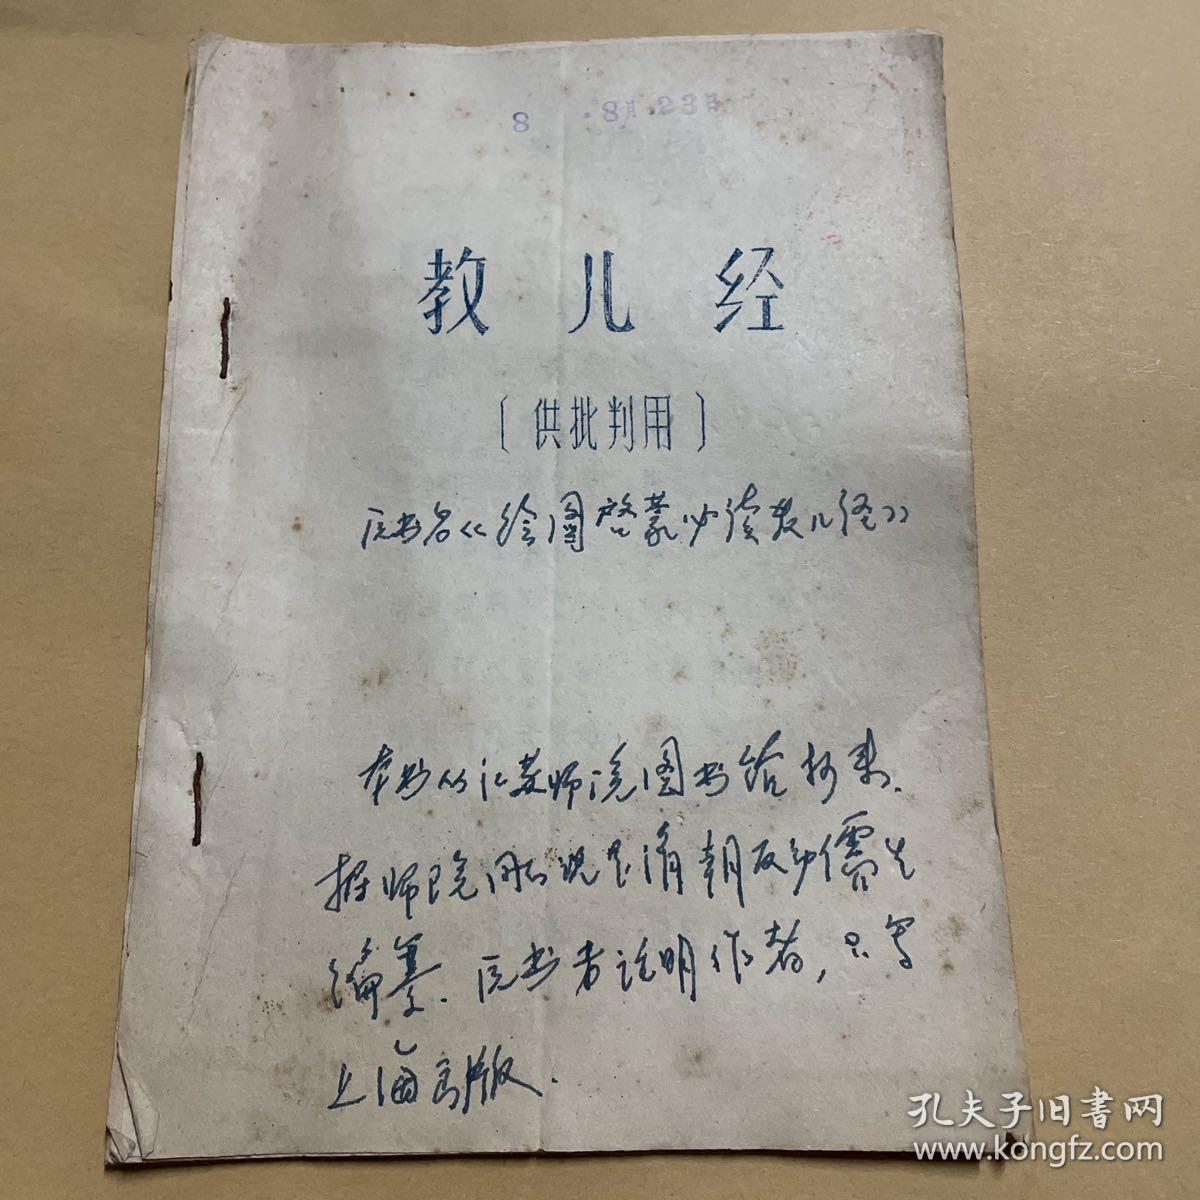 8 .8月23日
教儿经
〔供批判用〕
原书名《绘图启蒙必读教儿经》
本书从江苏师院图书馆抄来.
据师院同志说是清朝反动儒生
编纂.原书未说明作者,只写
上海出版.
孔夫子旧書网
www.kongfz.com